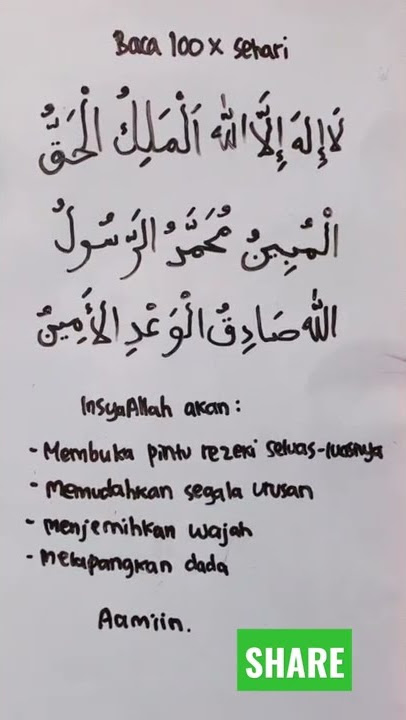 Baca 100 x sehari
لَا إِلَهَ إِلَّا اللهُ اَلْمَلِكُ الْحَقُّ
الْمُبِينُ مُحَمَّدُ الرَّسُولُ
اللهِ صَادِقُ الْوَعْدِ الأَمِينُ
InsyaAllah akan :
- Membuka pintu rezeki seluas-luasnya
- Memudahkan segala urusan
- menjernihkan wajah
- melapangkan dada
Aamiin.
SHARE